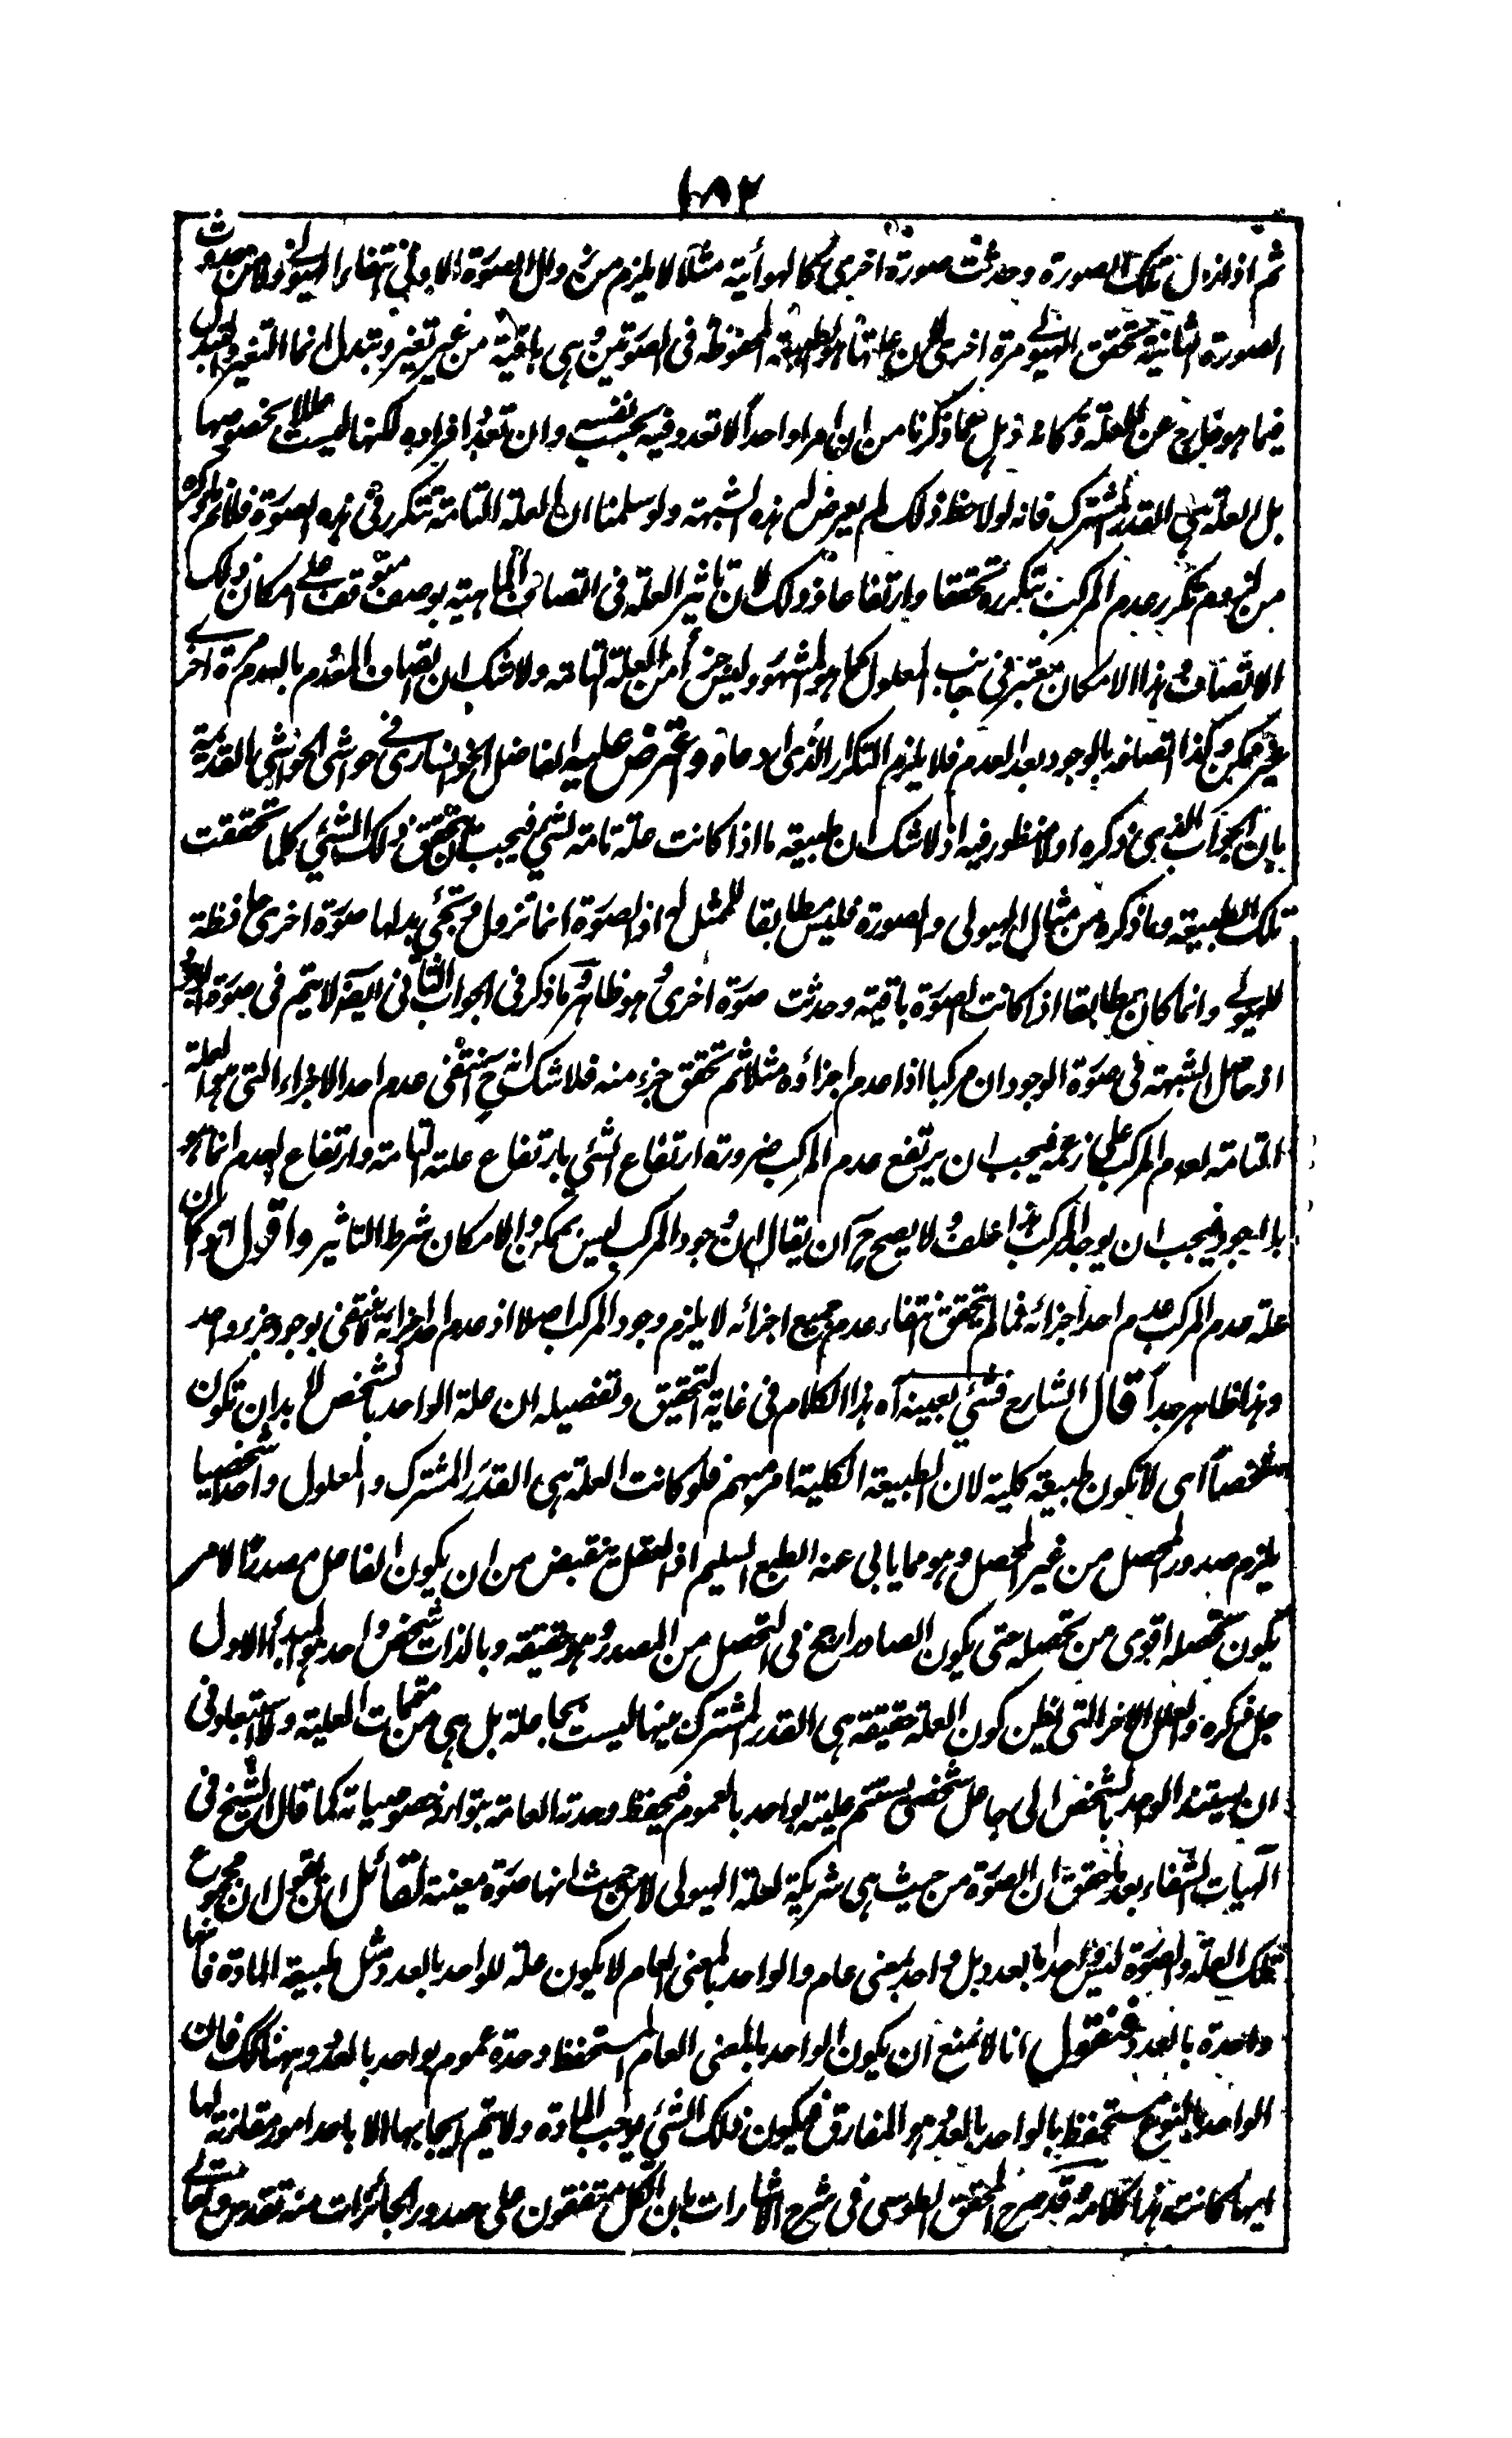 ١٨٢
ثم اذا زال تلك الصورة وحدثت صورة اخرى كالهوائية مثلا لا يلزم من زوال الصورة الاولى انتفاء الهيولى ولا من حدوث
الصورة الثانية تحقق الهيولى مرة اخرى لان علتها هو الطبيعة المحفوظة فى الصورتين وهى باقية من غير تغير وتبدل انما التغير والتبدل
فيما هو خارج عن العلة وكانه ذهل عما ذكرنا من ان امرا واحدا لا تعدد فيه بحسب نفسه وان تعدد افراده لكنها ليست عللا بخصوصها
بل العلة هى القدر المشترك فانه لو لاحظ ذلك لم يعرض له هذه الشبهة ولو سلمنا ان العلة التامة تتكرر فى هذه الصورة فلا نم ما ذكره
من لزوم تكرر عدم المركب بتكرره تحققا وارتفاعا وذلك لان تاثير العلة فى اتصاف الماهية بوصف متوقف على امكان ذلك
الاتصاف وهذا الامكان معتبر فى جانب المعلول كما هو المشهور وليس جزأ من العلة التامة ولا شك ان اتصاف المعدوم بالعدم مرة اخرى
غير ممكن وكذا اتصافه بالوجود بعد العدم فلا يلزم التكرار الذى ادعاه واعترض عليه الفاضل الخوانسارى فى حواشى الحواشى القديمة
بان الجواب الذى ذكره اولا منظور فيه اذ لا شك ان طبيعة ما اذا كانت علة تامة لشئ فيجب ان يتحقق ذلك الشئ كلما تحققت
تلك الطبيعة وما ذكره من مثال الهيولى والصورة فليس مطابقا للمثل له اذ الصورة انما تزول حين تجئ بدلها صورة اخرى حافظة
للهيولى وانما كان مطابقا اذا كانت الصورة باقية وحدثت صورة اخرى وهو ظاهر وما ذكر فى الجواب الثانى ايضا لا يتم فى صورة الوجود
اذ حاصل الشبهة فى صورة الوجود ان مركبا اذا عدم اجزاؤه مثلا ثم تحقق جزء منه فلا شك انه ح انتفى عدم احد الاجزاء التى هى العلة
التامة لعدم المركب على زعمه فيجب ان يرتفع عدم المركب ضرورة ارتفاع الشئ بارتفاع علته التامة وارتفاع العدم انما هو
بالوجود فيجب ان يوجد المركب هذا خلف ولا يصح ح ان يقال ان وجود المركب ليس بممكن والامكان شرط التاثير واقول لو كان
علة عدم المركب عدم احد اجزائه فما لم يتحقق انتفاء عدم جميع اجزائه لا يلزم وجود المركب اصلا اذ عدم احد اجزائه لا ينتفى بوجود جزء واحد
وهذا ظاهر جدا قال الشارح فشئ بعينه آه هذا الكلام فى غاية التحقيق وتفصيله ان علة الواحد بالشخص لا بد ان تكون
شخصا اى لا تكون طبيعة كلية لان الطبيعة الكلية امر مبهم فلو كانت العلة هى القدر المشترك والمعلول واحدا شخصيا
يلزم صدور المحصل من غير المحصل وهو مما يابى عنه الطبع السليم اذ العقل ينقبض من ان يكون الفاعل مصدرا لامر
يكون تحصله اقوى من تحصله حتى يكون الصادر ارجح فى التحصل من المصدر وهو حقيقة وبالذات شخص واحد هو المبدأ الاول
جل ذكره والعلل الاخر التى يظن كون العلة حقيقة هى القدر المشترك بينها ليست بجاعلة بل هى من متممات العلية ولا استبعاد فى
ان يستند الواحد بالشخص الى جاعل شخصى يستتم علية بواحد بالعموم فيحفظ وحدته العامة بتوارد خصوصياته كما قال الشيخ فى
الهيات الشفاء بعد ما حقق ان الصورة من حيث هى شريكة لعلة الهيولى لا من حيث انها صورة معينة لقائل ان يقول ان مجموع
تلك العلة والصورة ليس واحدا بالعدد بل واحد بمعنى عام والواحد بالمعنى العام لا يكون علة للواحد بالعدد ومثل طبيعة المادة فانها
واحدة بالعدد فنقول انا لا نمنع ان يكون الواحد بالمعنى العام المستحفظ وحدة عمومه بواحد بالعدد وههنا كذلك فان
الواحد بالنوع مستحفظ بالواحد بالعدد هو المفارق فيكون ذلك الشئ يوجب المادة ولا يتم ايجابها الا باحد امور مقارنة لها
ايها كانت هذا كلامه وقد صرح المحقق الطوسى فى شرح الاشارات بان الكل متفقون على صدور الجائزات منه تقدس وتعالى